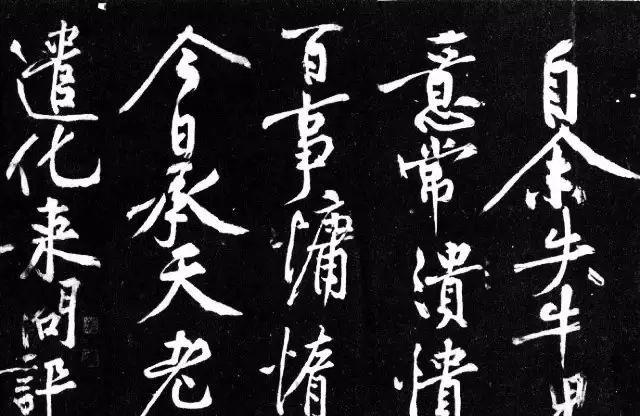 自余失牛
意常潰憒
百事慵惰
今日承天老
遣化来問評